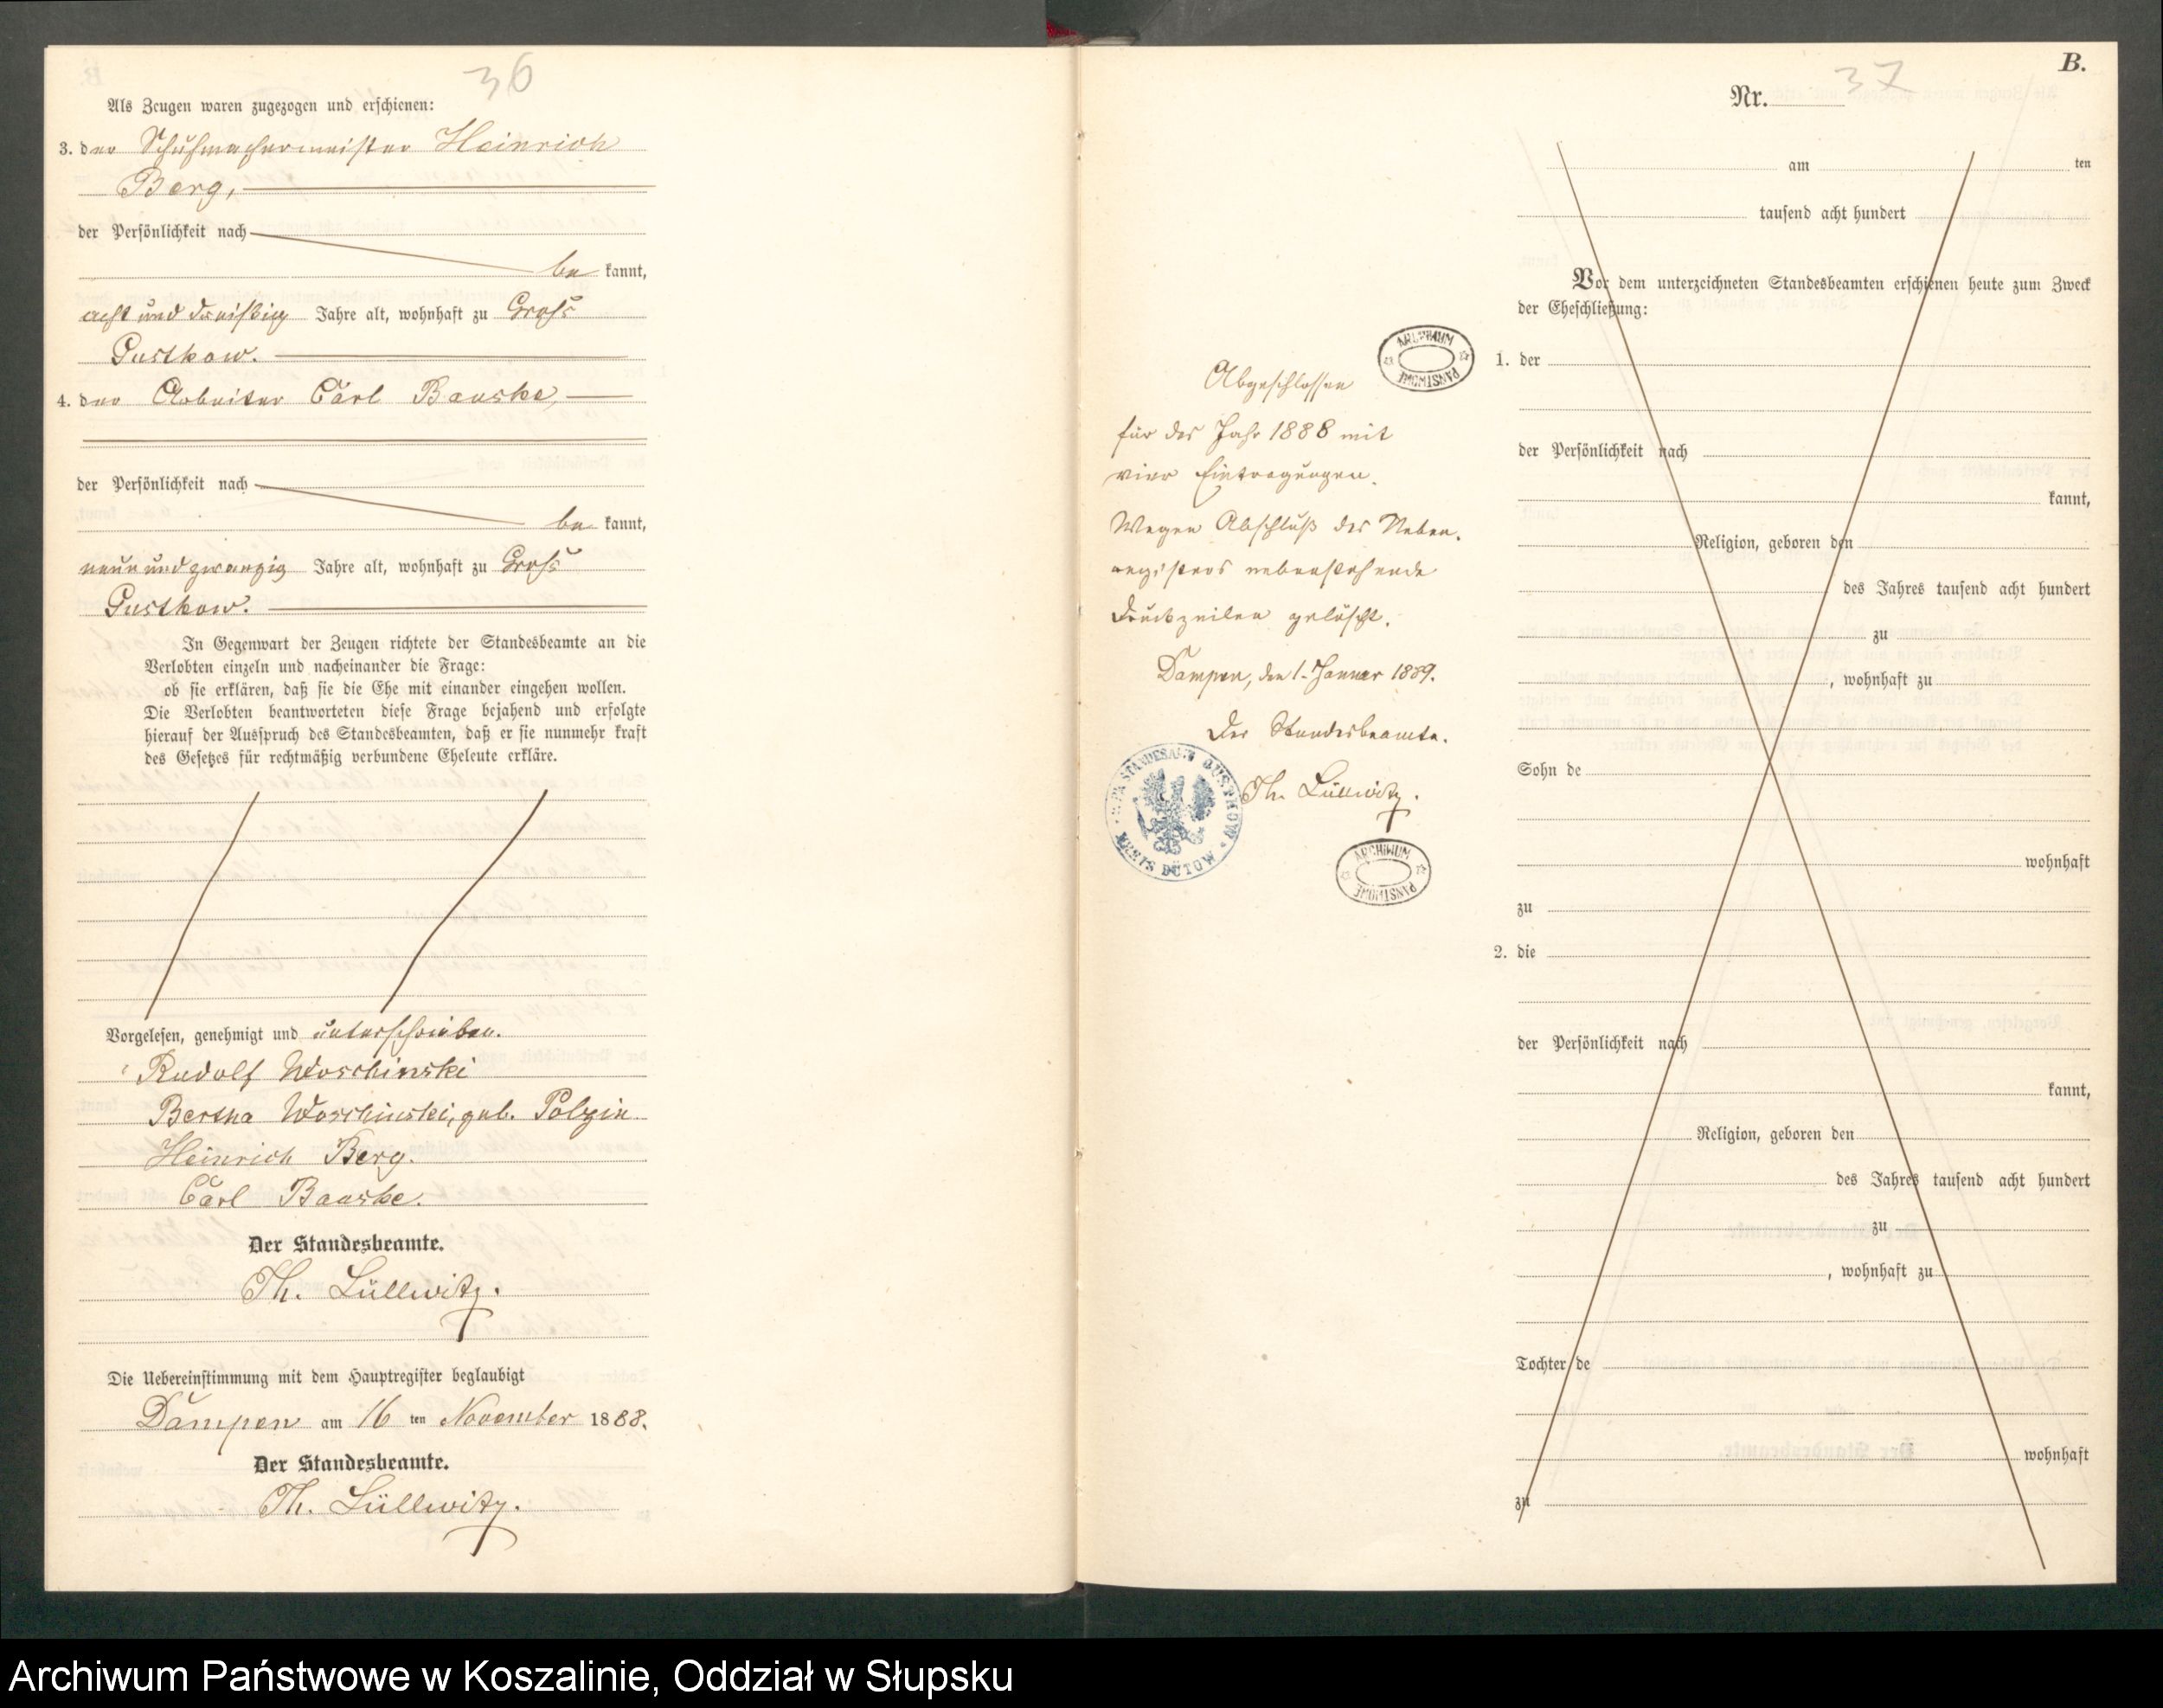 36
Als Zeugen waren zugezogen und erschienen:
3. der Schuhmachermeister Heinrich
Berg,
der Persönlichkeit nach
be kannt,
acht und dreißig Jahre alt, wohnhaft zu Gross
Gustkow.
4. der Arbeiter Carl Bauske,
der Persönlichkeit nach
be kannt,
neun und zwanzig Jahre alt, wohnhaft zu Gross
Gustkow.
In Gegenwart der Zeugen richtete der Standesbeamte an die
Verlobten einzeln und nacheinander die Frage:
ob sie erklären, daß sie die Ehe mit einander eingehen wollen.
Die Verlobten beantworteten diese Frage bejahend und erfolgte
hierauf der Ausspruch des Standesbeamten, daß er sie nunmehr kraft
des Gesetzes für rechtmäßig verbundene Eheleute erkläre.
Vorgelesen, genehmigt und unterschrieben.
Rudolf Woschinski
Bertha Woschinski, geb. Polzin
Heinrich Berg.
Carl Bauske.
Der Standesbeamte.
Th. Lüllwitz.
Die Uebereinstimmung mit dem Hauptregister beglaubigt
Dampen am 16 ten November 1888.
Der Standesbeamte.
Th. Lüllwitz.
Abgeschlossen
für das Jahr 1888 mit
vier Eintragungen.
Wegen Abschluß des Neben-
registers nebenstehende
Druckzeilen gelöscht.
Dampen, den 1. Januar 1889.
Der Standesbeamte.
Th. Lüllwitz.
STANDESAMT GUSTKOW
KREIS BÜTOW
ARCHIWUM PAŃSTWOWE
ARCHIWUM PAŃSTWOWE
37
B.
Nr.
am ten
tausend acht hundert
Vor dem unterzeichneten Standesbeamten erschienen heute zum Zweck
der Eheschließung:
1. der
der Persönlichkeit nach
kannt,
Religion, geboren den
des Jahres tausend acht hundert
zu
, wohnhaft zu
Sohn de
wohnhaft
zu
2. die
der Persönlichkeit nach
kannt,
Religion, geboren den
des Jahres tausend acht hundert
zu
, wohnhaft zu
Tochter de
wohnhaft
zu
Archiwum Państwowe w Koszalinie, Oddział w Słupsku